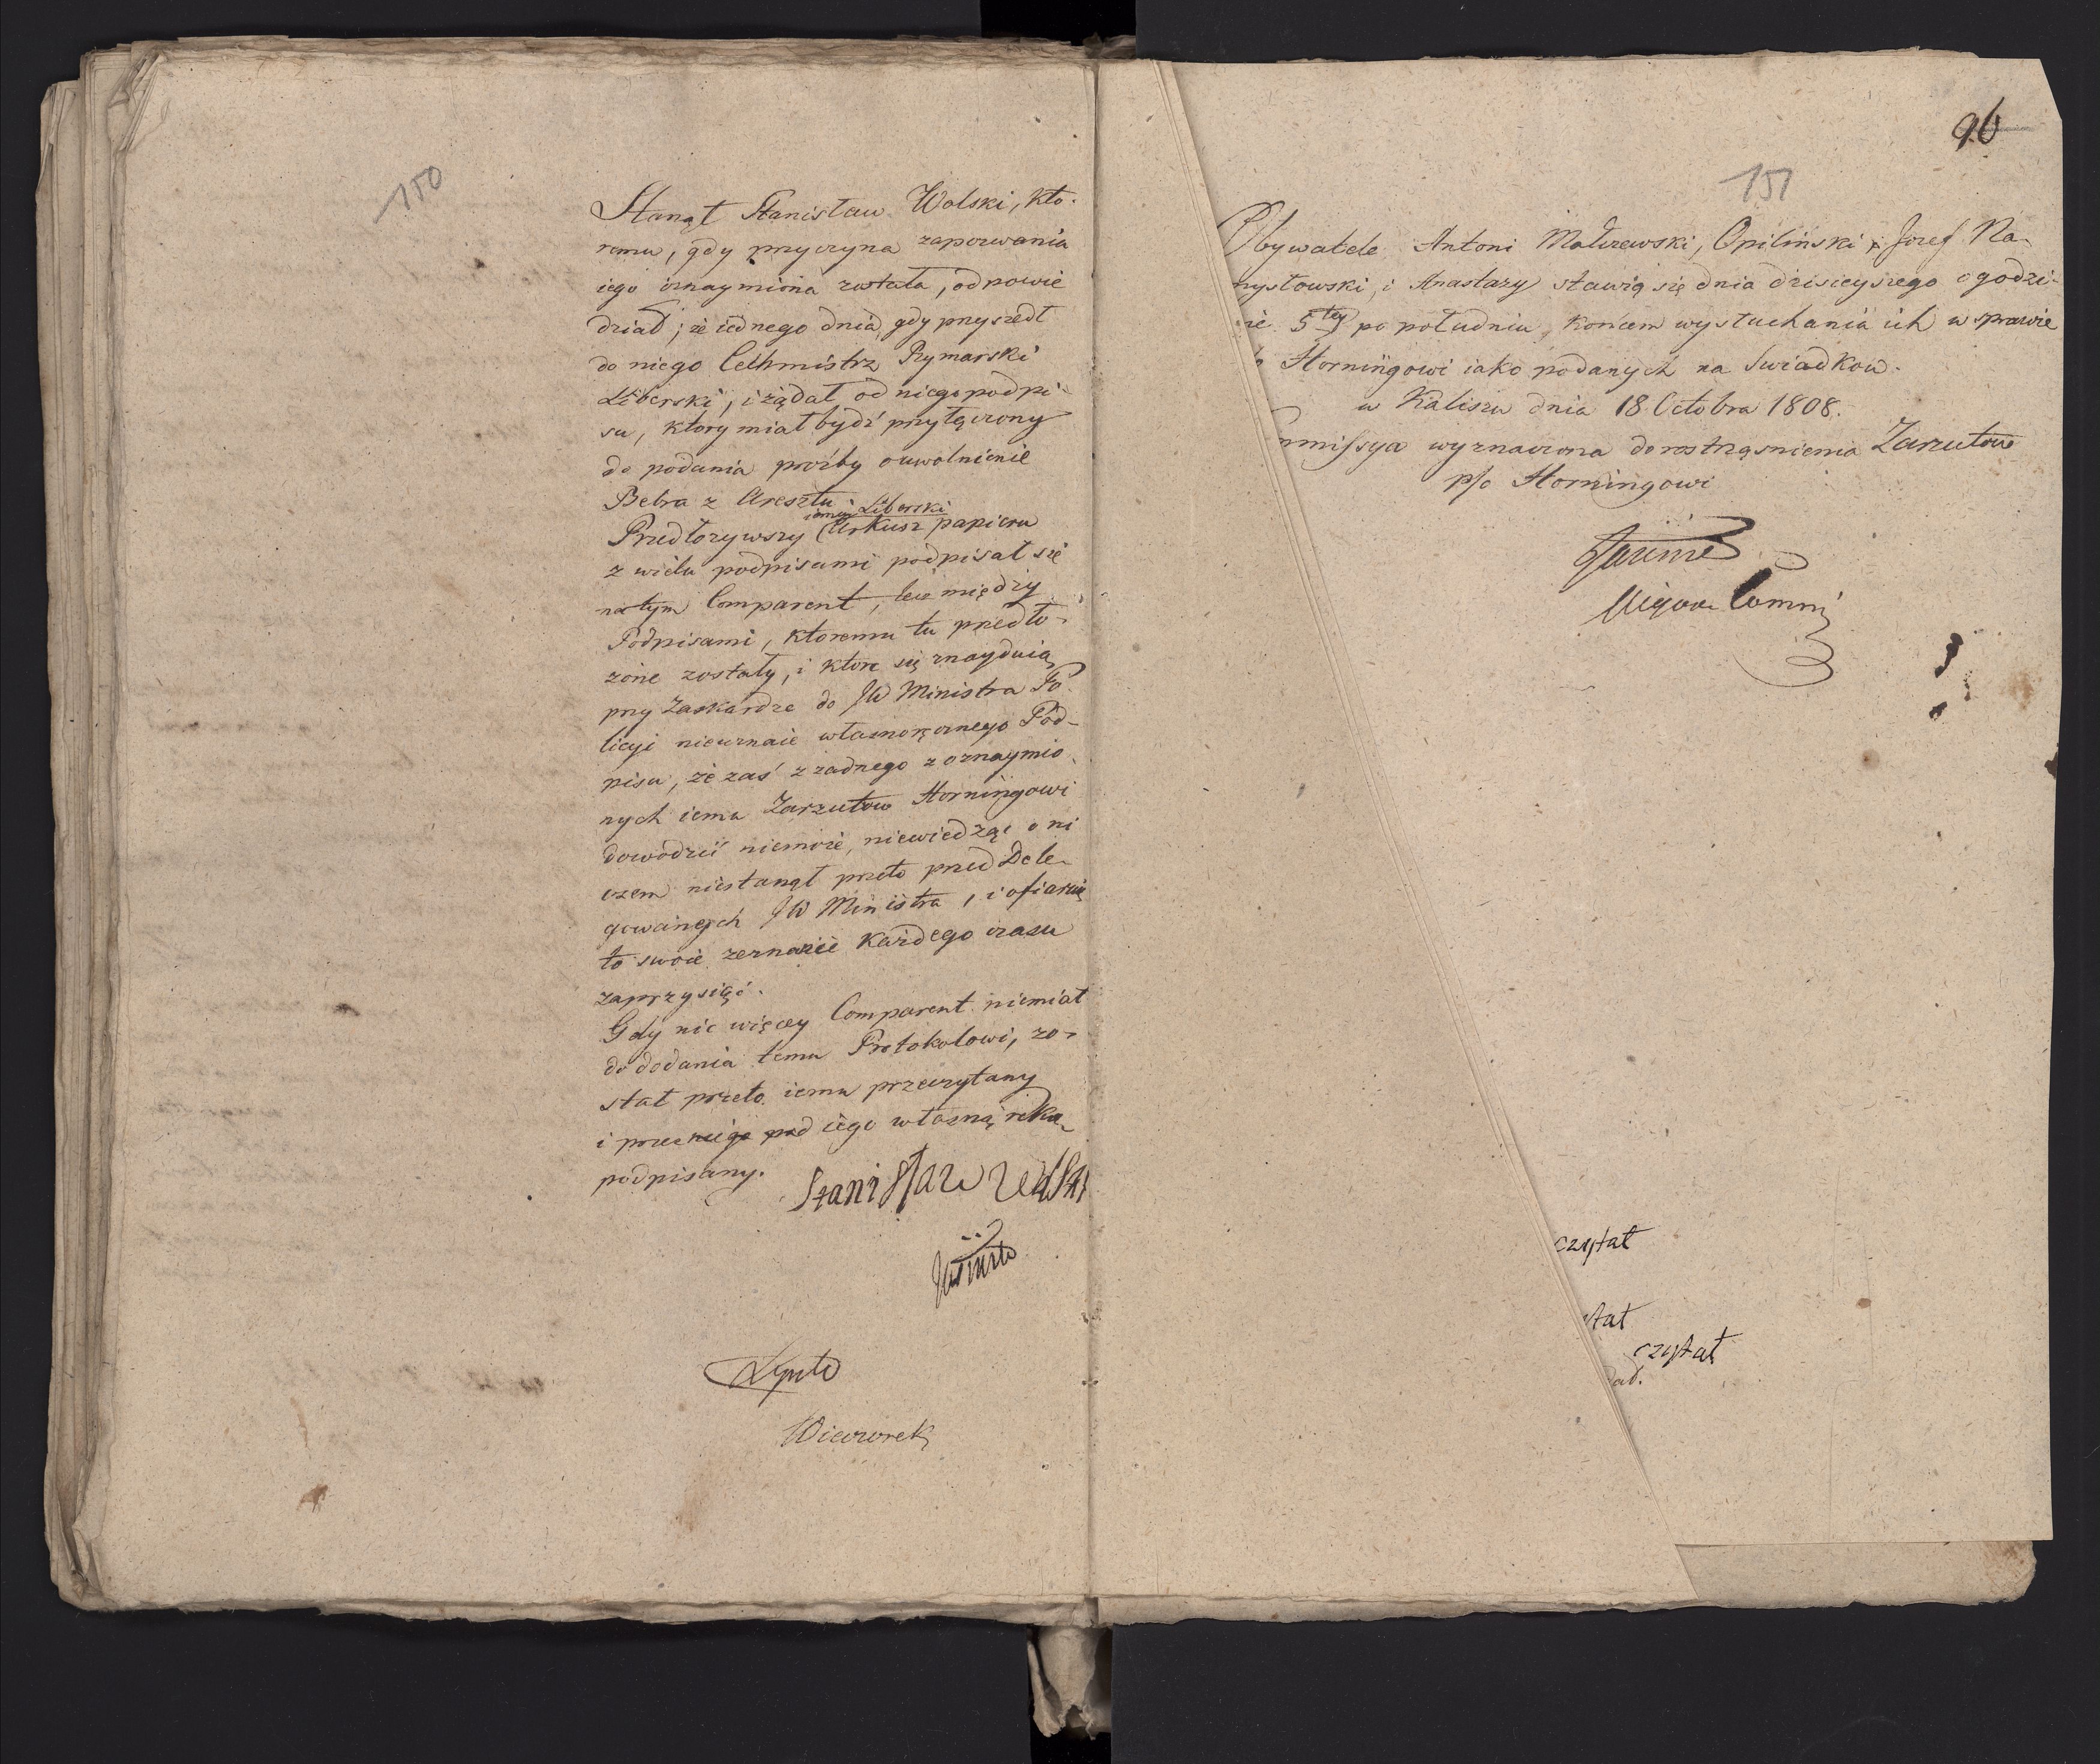 150
Stanął Stanisław Wolski, kto-
remu, gdy przyczyna zapozwania
iego oznaymiona została, odpowie
dział; że iednego dnia gdy przyszedł
do niego Cechmistrz Rymarski
Liberski, i żądał od niego podpi-
su, ktory miał bydź przyłączony
do podania prożby o uwolnienie
Bebra z Aresztu
Liberski
Przedłożywszy Arkusz papieru
z wielu podpisami podpisał się
na tym Comparent, lecz między
Podpisami, ktoremu tu przedło-
żone zostały, i ktore się znayduią
przy Zaskardze do JW Ministra Po
licyi nieuznaie własnoręcznego Pod-
pisu, że zaś z żadnego z oznaymio-
nych iemu Zarzutow Horningowi
dowodzić niemoże, niewiedząc o ni
czem niestanął przeto przed Dele-
gowanych JW Ministra, i ofiaruię
to swoie zeznanie każdego czasu
zaprzysiąc.
Gdy nic więcey Comparent niemiał
do dodania temu Protokolowi, zo-
stał przeto iemu przeczytany
i przez niego pod iego własną ręką
podpisany.
Stanisław Wolski
Wieczorek
96
151
Obywatele Antoni Malczewski, Opiliński i Jozef Na-
mysłowski, i Anastazy stawią się dnia dzisieyszego o godzi-
nie 5tey po południu, końcem wysłuchania ich w sprawie
Horningowi iako podanych na Swiadkow.
w Kaliszu dnia 18 Octobra 1808.
mmissya wyznaczona do rostrząśnienia Zarzutow
p/o Horningowi
czytał
tał
czytał